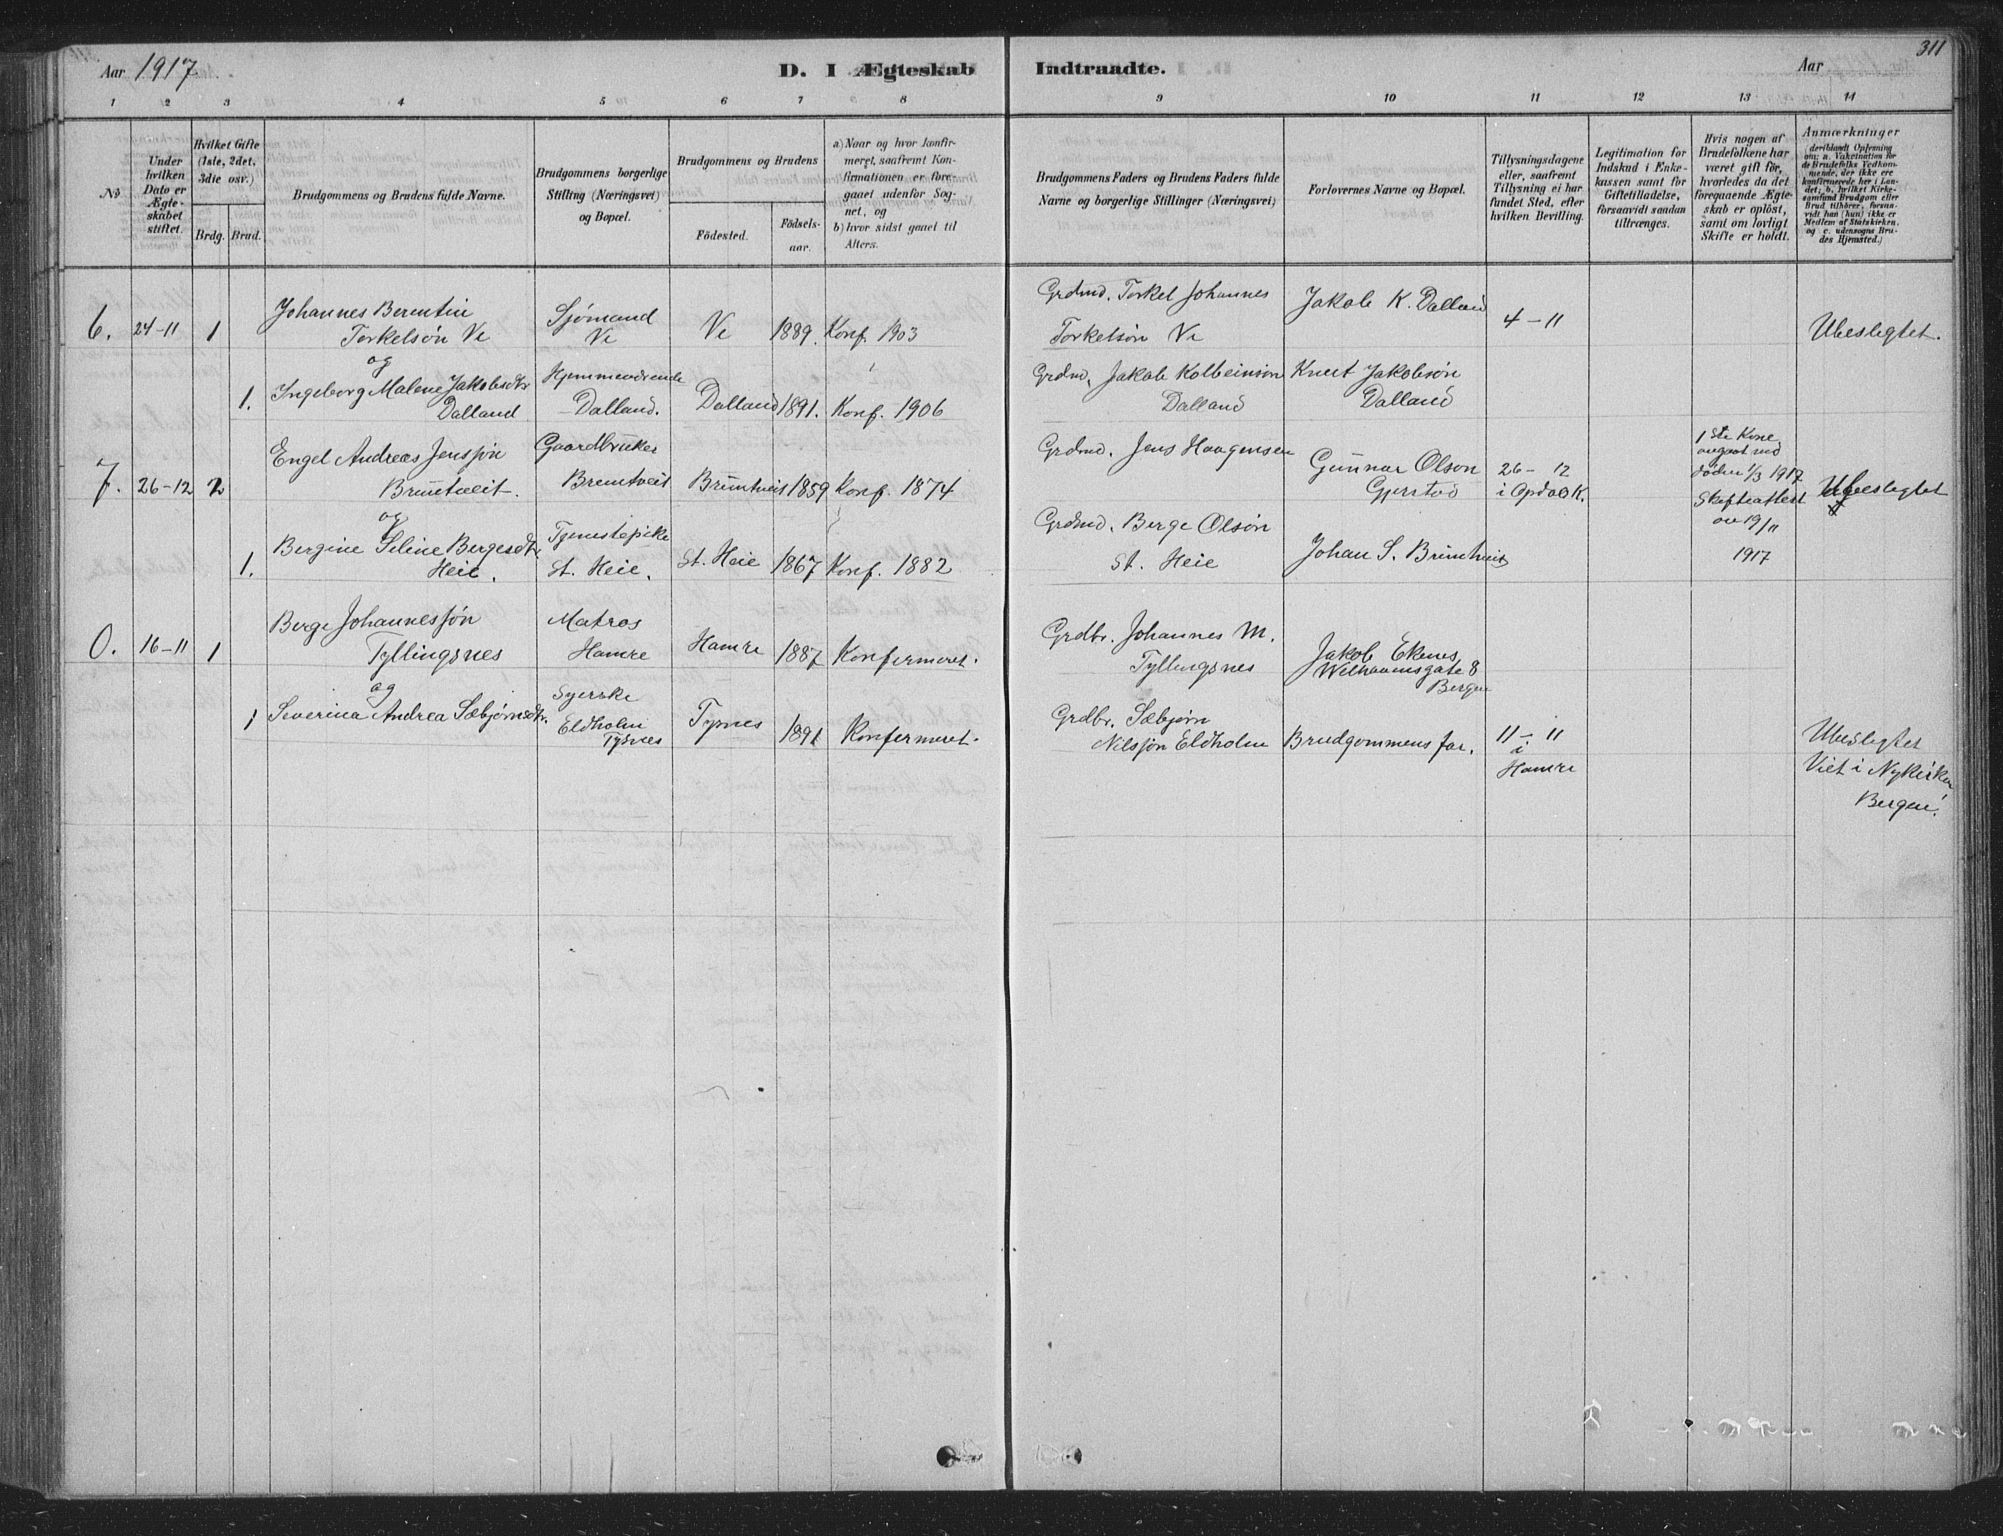 311
Aar 1917 D. I Ægteskab Indtraadte. Aar
1 2 3 4 5 6 7 8 9 10 11 12 13 14
No
Under hvilken Dato er Ægteskabet stiftet.
Hvilket Gifte (1ste, 2det, 3die osv.)
Brdg. Brud.
Brudgommens og Brudens fulde Navne.
Brudgommens borgerlige Stilling (Næringsvei) og Bopæl.
Brudgommens og Brudens
Födested. Födsels-aar.
a) Naar og hvor konfirmeret, saafremt Konfirmationen er foregaaet udenfor Sognet, og
b) hvor sidst gaaet til Alters.
Brudgommens Faders og Brudens Faders fulde Navne og borgerlige Stillinger (Næringsvei)
Forlovernes Navne og Bopæl.
Tillysningsdagene eller, saafremt Tillysning ei har fundet Sted, efter hvilken Bevilling.
Legitimation for Indskud i Enkekassen samt for Giftetilladelse, forsaavidt saadan tiltrænges.
Hvis nogen af Brudefolkene har været gift før, hvorledes da det foregaaende Ægteskab er oplöst, samt om lovligt Skifte er holdt.
Anmærkninger
(deriblandt Oplysning om: a. Vakcination for de Brudefolks Vedkommende, der ikke ere konfirmerede her i Landet; b. hvilket Kirkesamfund Brudgom eller Brud tilhører, forsaavidt han (hun) ikke er Medlem af Statskirken, og c. udensogns Brudes Hjemsted.)
6. 24-11 1
Johannes Berentin
Torkelsøn Ve
Sjømand
Ve
Ve 1889. Konf. 1903
Grdmd. Torkel Johannes
Torkelsøn Ve
Jakob K. Dalland
4-11
Ubeslegtet.
og
1. Ingeborg Malene Jakobsdtr
Dalland
Hjemmeværende
Dalland.
Dalland 1891. Konf. 1906
Grdmd. Jakob Kolbeinsøn
Dalland
Knut Jakobsøn
Dalland
7. 26-12 2
Engel Andreas Jenssøn
Bruntveit.
Gaardbruker
Bruntveit
Bruntveit 1859 Konf. 1874
Grdmd. Jens Haagensen
Gunnar Olson
Gjerstad
26-12
i Opdal K.
1ste Kone
avgaat ved
døden 1/3 1917
Skifteattest
av 19/11
1917
Ubeslegtet
og
1. Bergine Seline Bergesdtr
Heie.
Tjenestepike
St. Heie.
St. Heie 1867 Konf. 1882
Grdmd. Berge Olsøn
St. Heie
Johan S. Bruntveit
0. 16-11 1
Berge Johannessøn
Tyllingsnes
Matros
Hamre
Hamre 1887 Konfermeret.
Grdbr. Johannes M.
Tyllingsnes
Jakob Ekenes
Welhavensgate 8
Bergen
og
1 Severina Andrea Sæbjørnsdtr.
Syerske
Eldholm
Tysnes
Tysnes 1891 Konfermeret.
Grdbr. Sæbjørn
Nilssøn Eldholm
Brudgommens far.
11-11
i
Hamre
Ubeslegtet
Viet i Nykirken
Bergen.